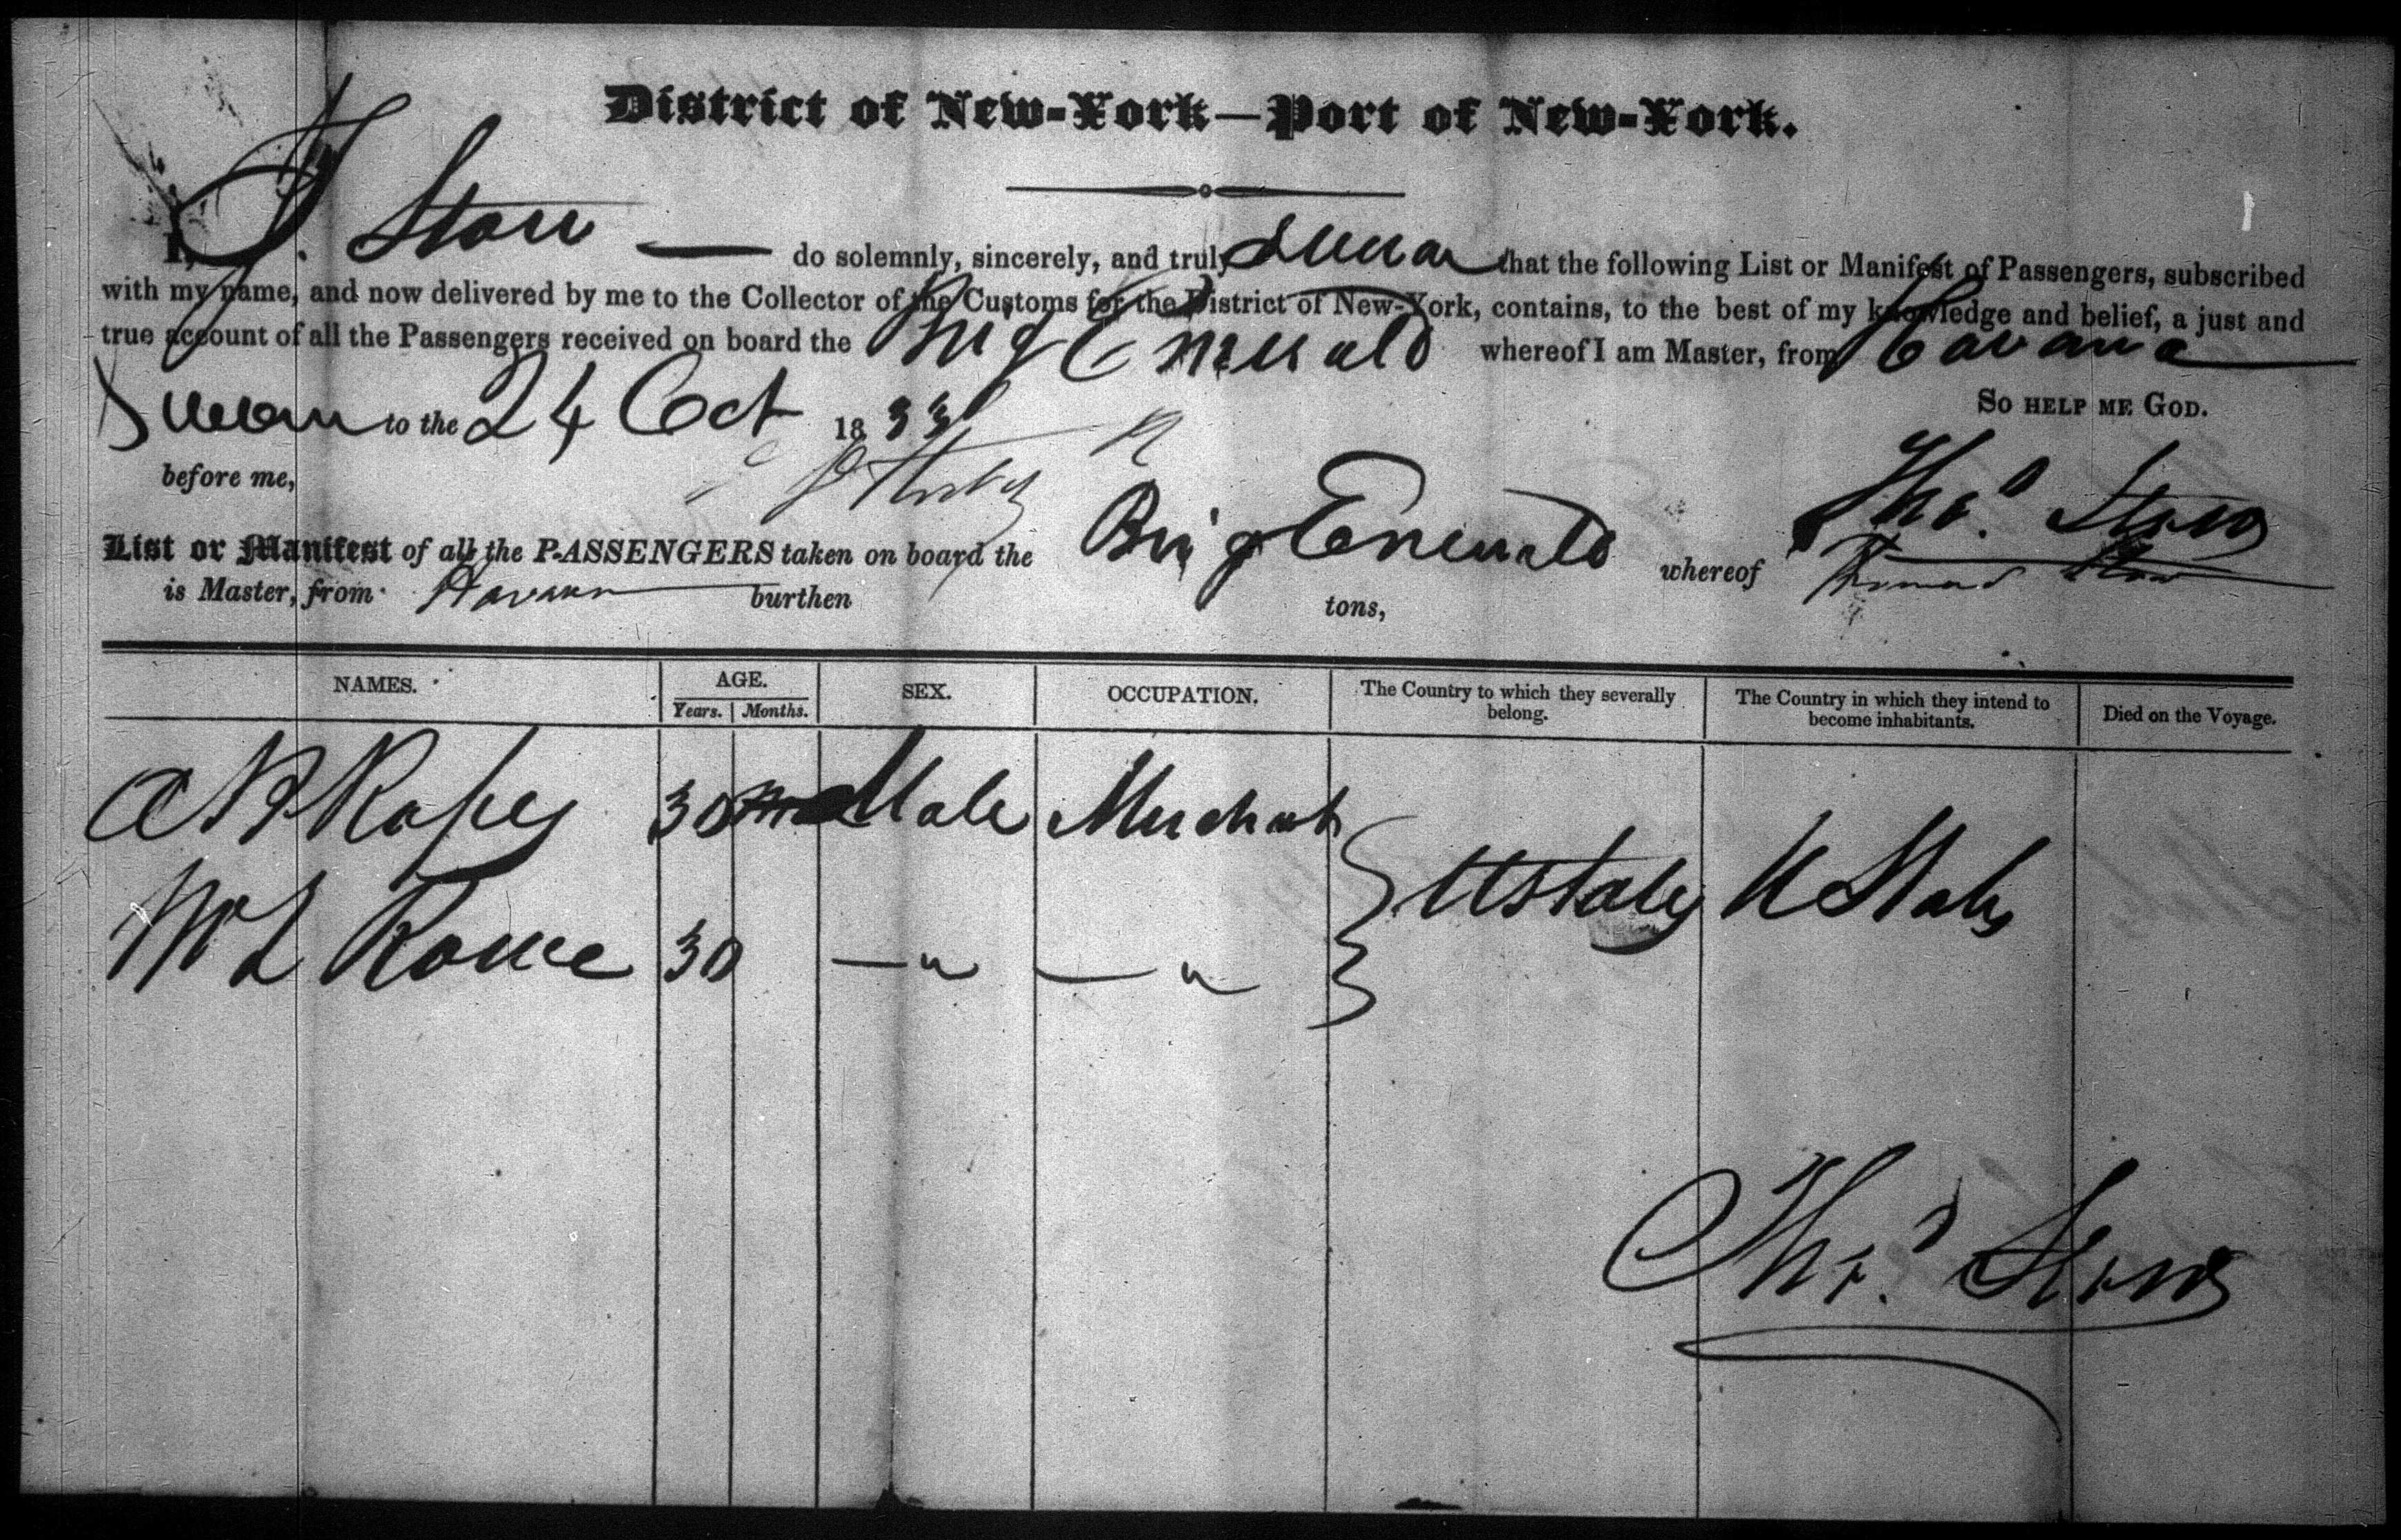 District of New-York—Port of New-York.
I, T. Storr — do solemnly, sincerely, and truly swear that the following List or Manifest of Passengers, subscribed
with my name, and now delivered by me to the Collector of the Customs for the District of New-York, contains, to the best of my knowledge and belief, a just and
true account of all the Passengers received on board the Brig Emerald whereof I am Master, from Havana
Sworn to the 24 Oct 1833
So help me God.
before me,
Thos.
List or Manifest of all the PASSENGERS taken on board the Brig Emerald whereof
Thomas
is Master, from Havana burthen tons,
NAMES. AGE. SEX. OCCUPATION. The Country to which they severally belong. The Country in which they intend to become inhabitants. Died on the Voyage.
Years. Months.
Ropes 30 Male Merchant
U States U States
30 — " — "
Thos.